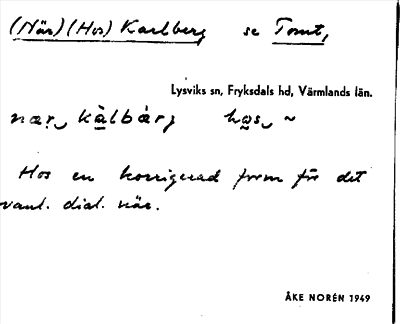 (När) (Hos) Karlberg se Tomt,
Lysviks sn, Fryksdals hd, Värmlands län.
næṛ‿ kàlbárj họs‿ ~
Hos en korrigerad form för det
vanl. dial. när.
ÅKE NORÉN 1949